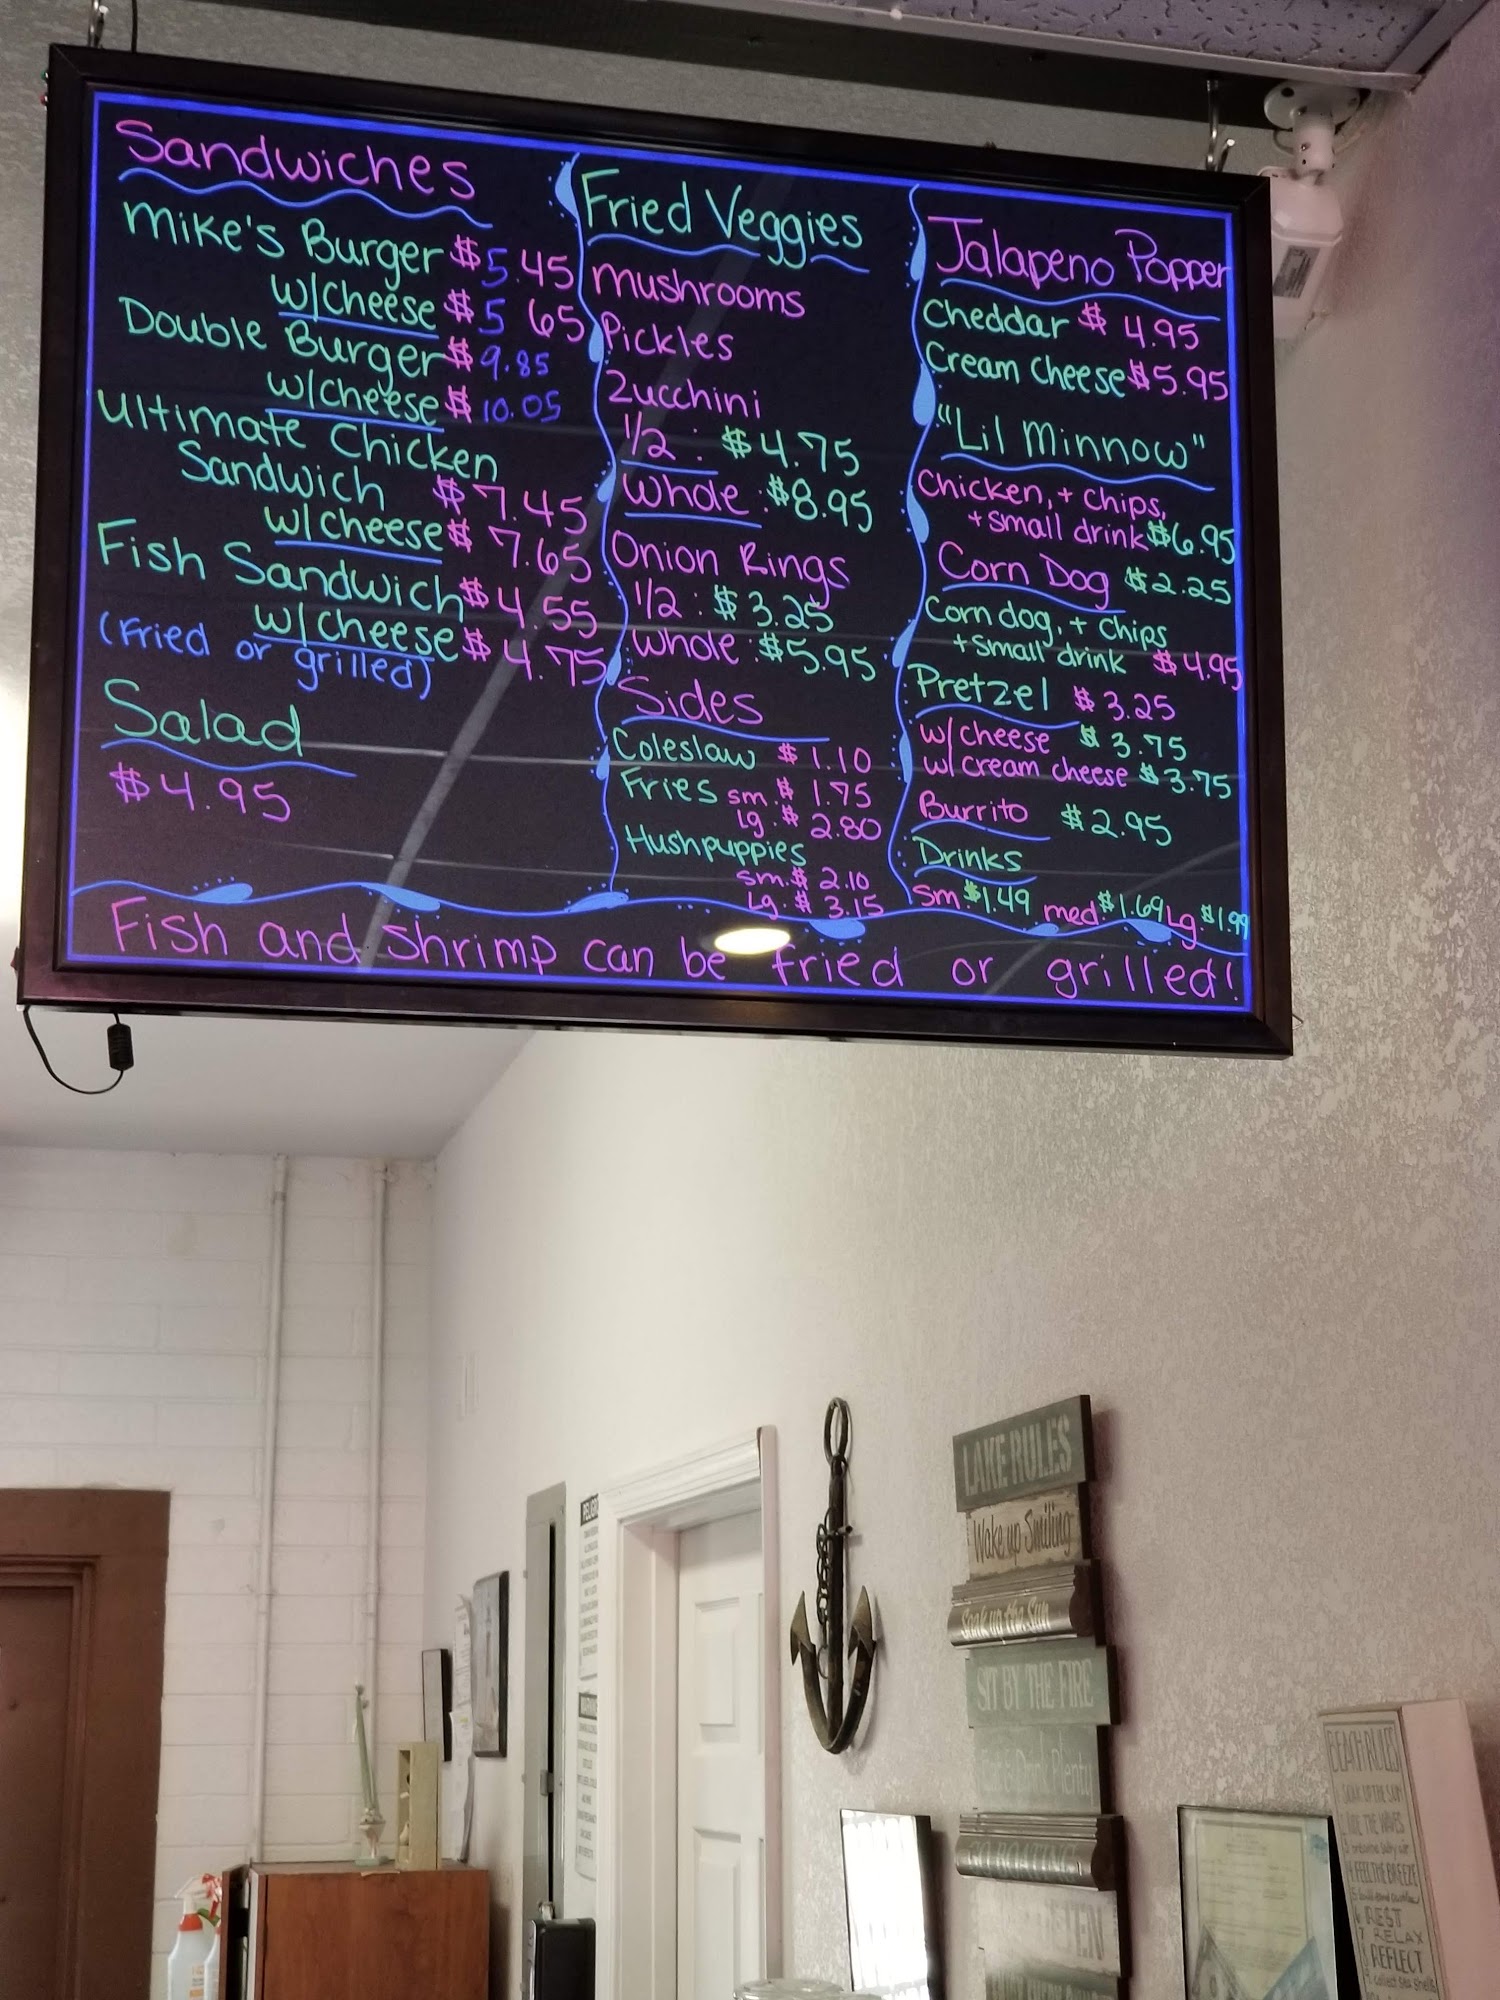 Sandwiches
Mike's Burger $5.45
w/cheese $5 65
Double Burger $9.85
w/cheese $10.05
Ultimate Chicken
Sandwich $7.45
w/cheese $7.65
Fish Sandwich $4.55
w/cheese $4.75
(Fried or grilled)
Salad
$4.95
Fried Veggies
Mushrooms
Pickles
Zucchini
1/2 : $4.75
Whole : $8.95
Onion Rings
1/2 : $3.25
Whole : $5.95
Sides
Coleslaw $1.10
Fries sm. $1.75
lg. $2.80
Hushpuppies
sm. $2.10
Lg. $3.15
Jalapeno Popper
Cheddar $4.95
Cream Cheese $5.95
"Lil Minnow"
Chicken, + chips,
+ small drink $6.95
Corn Dog $2.25
Corn dog, + chips
+ small drink $4.95
Pretzel $3.25
w/ cheese $3.75
w/ cream cheese $3.75
Burrito $2.95
Drinks
Sm. $1.49 med $1.69 Lg $1.99
Fish and shrimp can be fried or grilled!
LAKE RULES
Wake up Smiling
Soak up the Sun
SIT BY THE FIRE
Plenty
GO BOATING
BEACH RULES
SOAK UP THE SUN
RIDE THE WAVES
FEEL THE BREEZE
REST
RELAX
REFLECT
collect sea shells